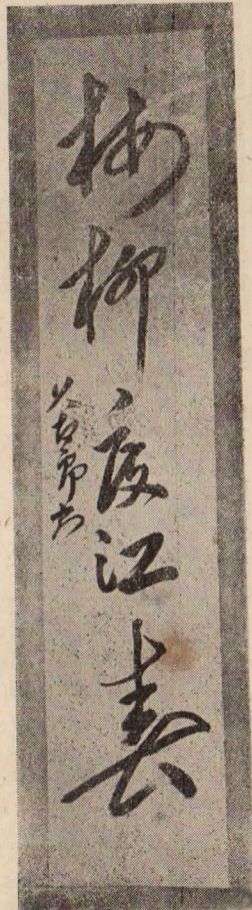 梅柳度江春